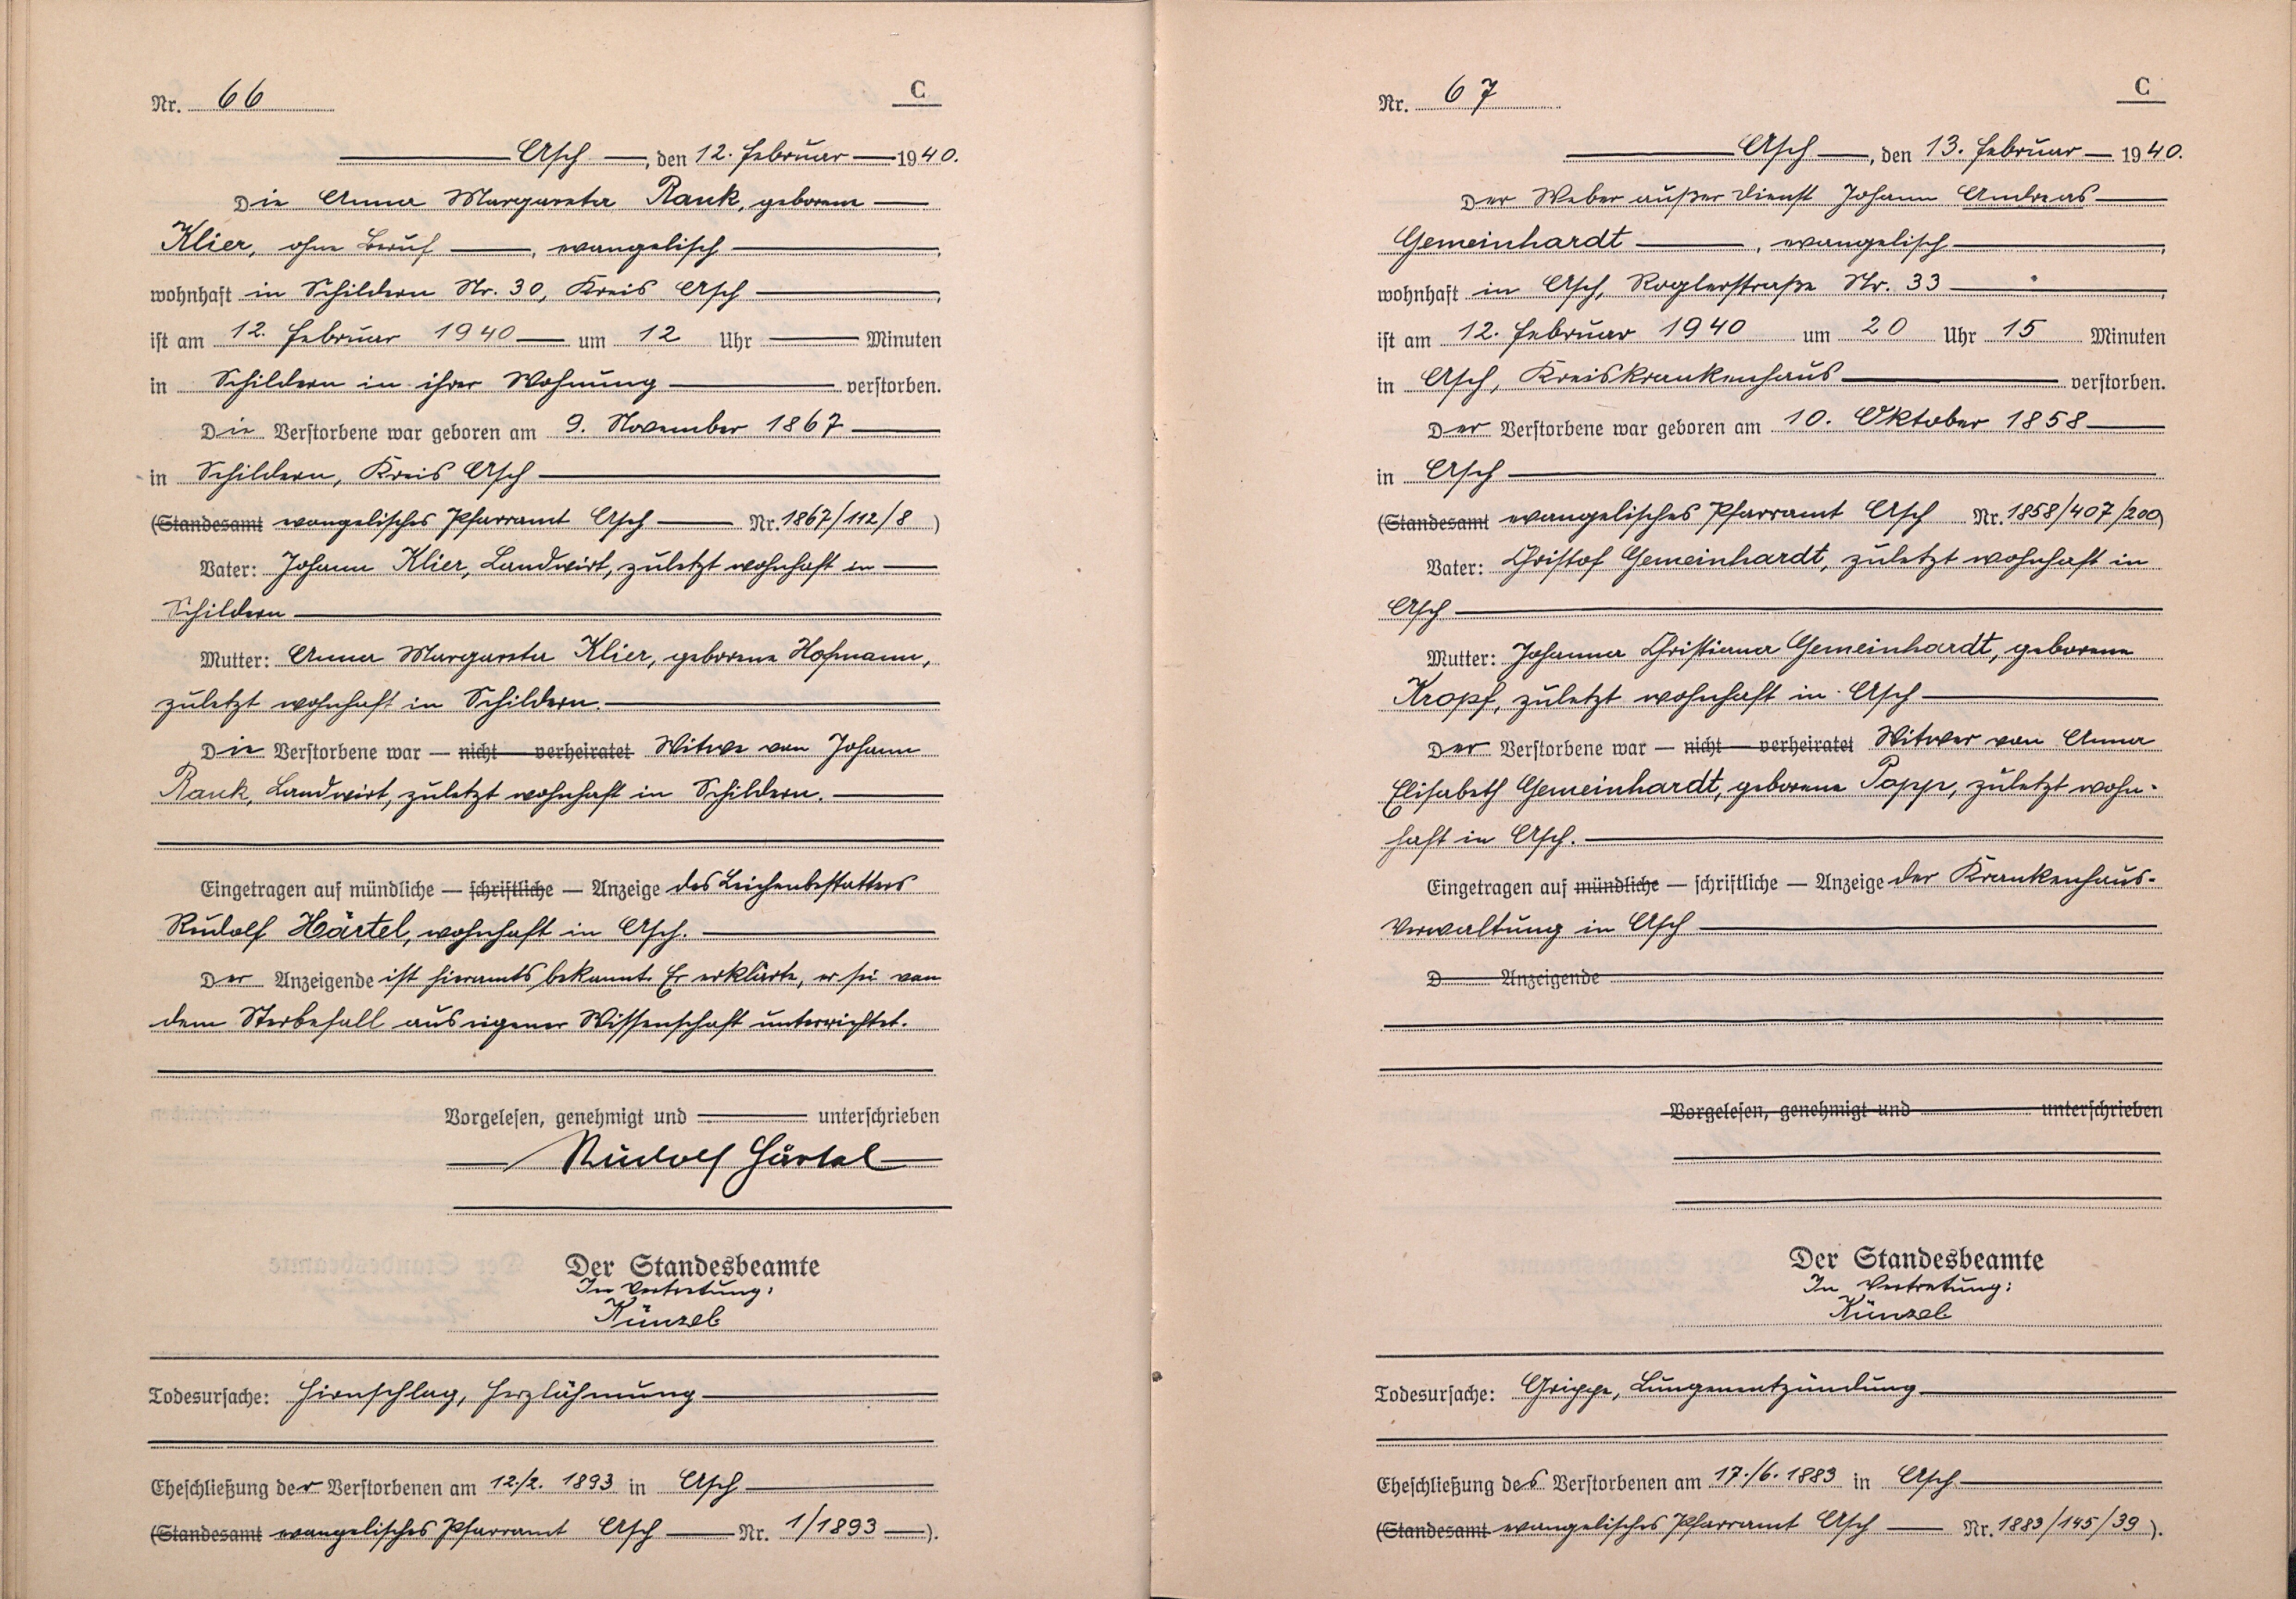 Nr. 66
C
Asch, den 12. Februar 1940.
Die Anna Margareta Rank, geborene
Klier, ohne Beruf, evangelisch,
wohnhaft in Schildern Nr. 30, Kreis Asch,
ist am 12. Februar 1940 um 12 Uhr Minuten
in Schildern in ihrer Wohnung verstorben.
Die Verstorbene war geboren am 9. November 1867
in Schildern, Kreis Asch
(Standesamt evangelisches Pfarramt Asch Nr. 1867/112/8)
Vater: Johann Klier, Landwirt, zuletzt wohnhaft in
Schildern
Mutter: Anna Margareta Klier, geborene Hofmann,
zuletzt wohnhaft in Schildern.
Die Verstorbene war — nicht — verheiratet Witwe von Johann
Rank, Landwirt, zuletzt wohnhaft in Schildern.
Eingetragen auf mündliche — schriftliche — Anzeige des Leichenbestatters
Rudolf Härtel, wohnhaft in Asch.
Der Anzeigende ist hieramts bekannt. Er erklärte, er sei von
dem Sterbefall aus eigener Wissenschaft unterrichtet.
Vorgelesen, genehmigt und unterschrieben
Rudolf Härtel
Der Standesbeamte
In Vertretung:
Künzel
Todesursache: Hirnschlag, Herzlähmung
Eheschließung der Verstorbenen am 12./2. 1893 in Asch
(Standesamt evangelisches Pfarramt Asch Nr. 1/1893).
Nr. 67
C
Asch, den 13. Februar 1940.
Der Weber außer Dienst Johann Andreas
Gemeinhardt, evangelisch,
wohnhaft in Asch, Roglerstraße Nr. 33,
ist am 12. Februar 1940 um 20 Uhr 15 Minuten
in Asch, Kreiskrankenhaus verstorben.
Der Verstorbene war geboren am 10. Oktober 1858
in Asch
(Standesamt evangelisches Pfarramt Asch Nr. 1858/407/200)
Vater: Christof Gemeinhardt, zuletzt wohnhaft in
Asch
Mutter: Johanna Christiana Gemeinhardt, geborene
Kropf, zuletzt wohnhaft in Asch
Der Verstorbene war — nicht — verheiratet Witwer von Anna
Elisabeth Gemeinhardt, geborene Popp, zuletzt wohn-
haft in Asch.
Eingetragen auf mündliche — schriftliche — Anzeige der Krankenhaus-
verwaltung in Asch
D Anzeigende
Vorgelesen, genehmigt und unterschrieben
Der Standesbeamte
In Vertretung:
Künzel
Todesursache: Grippe, Lungenentzündung
Eheschließung des Verstorbenen am 17./6. 1883 in Asch
(Standesamt evangelisches Pfarramt Asch Nr. 1883/145/39).